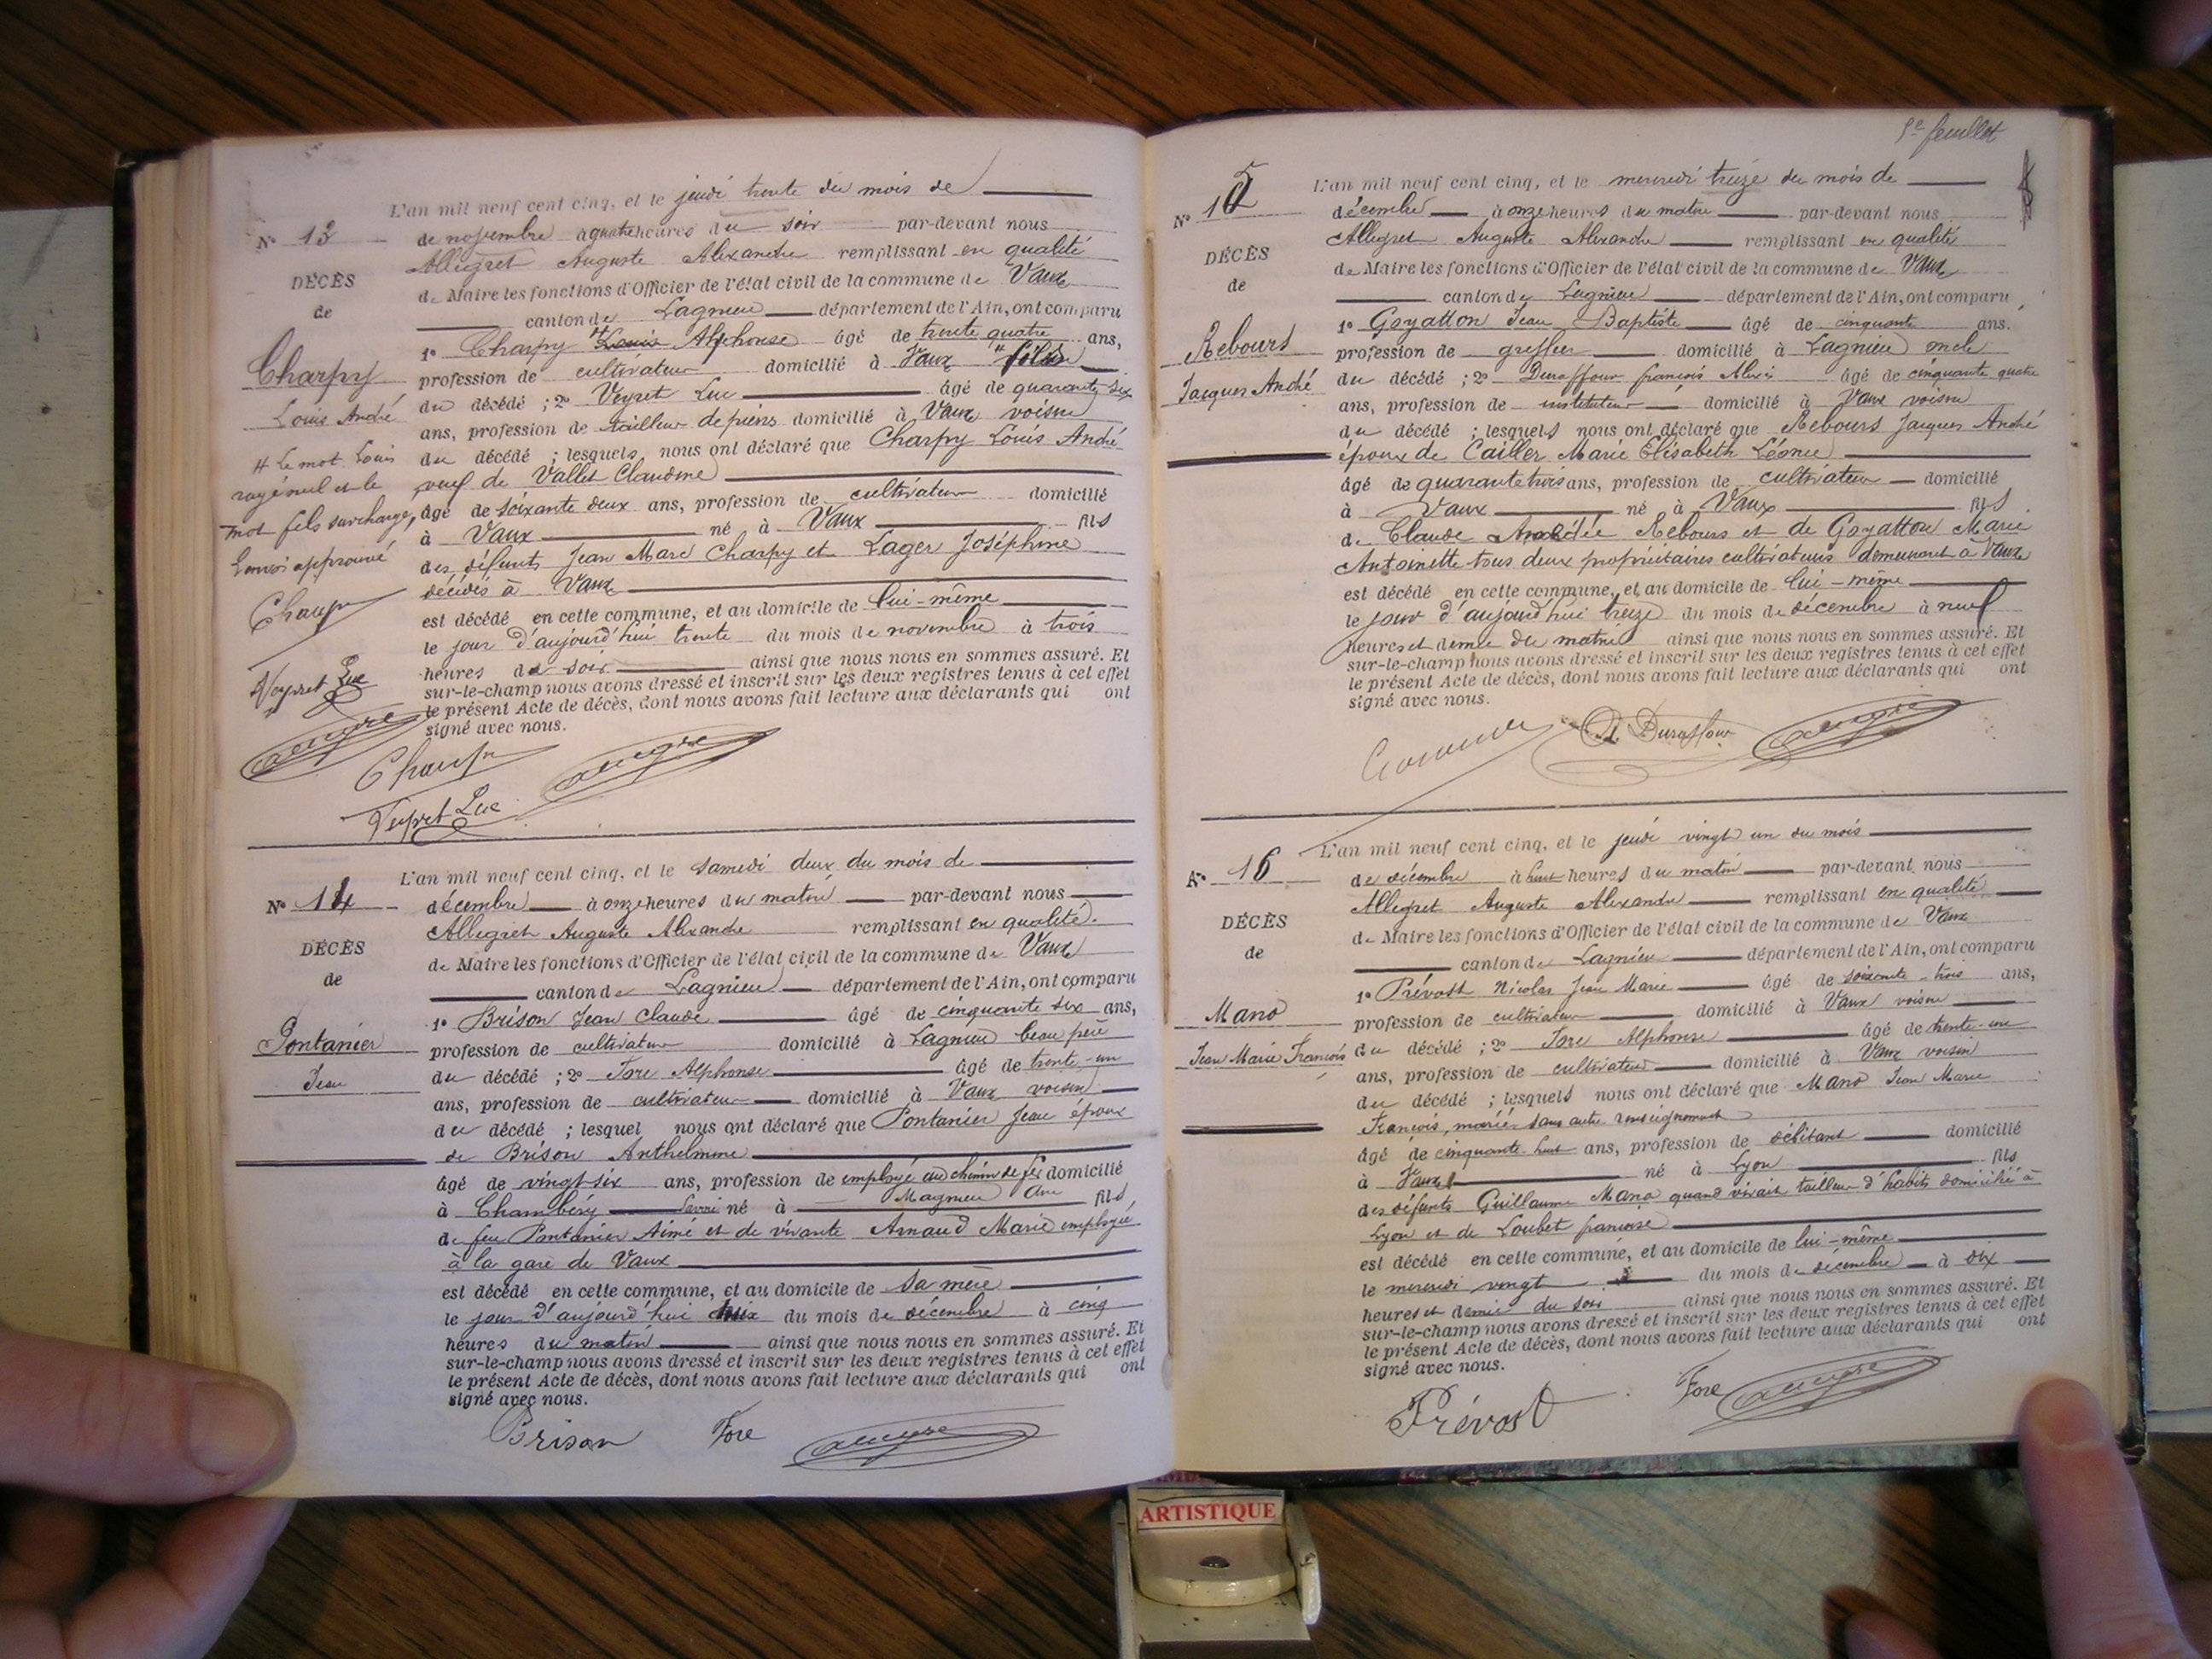 L'an mil neuf cent cinq, et le jeudi trente du mois de
N° 13
de novembre à quatre heures du soir par-devant nous
Allegret Auguste Alexandre remplissant en qualité
DÉCÈS
de Maire les fonctions d'Officier de l'état civil de la commune de Vaux
de
canton de Lagnieu département de l'Ain, ont comparu
1° Charpy Louis Alphonse âgé de trente quatre ans,
Charpy
profession de cultivateur domicilié à Vaux fils
du décédé ; 2° Veyret Luc âgé de quarante six
Louis André
ans, profession de tailleur de pierre domicilié à Vaux voisin
du décédé ; lesquels nous ont déclaré que Charpy Louis André
Le mot Louis
veuf de Vallet Claudine
rayé nul et le
âgé de soixante deux ans, profession de cultivateur domicilié
mot fils surchargé,
à Vaux né à Vaux fils
des défunts Jean Marc Charpy et Lager Joséphine
approuvé
décédés à Vaux
est décédé en cette commune, et au domicile de lui-même
Charpy
le jour d'aujourd'hui trente du mois de novembre à trois
heures du soir ainsi que nous nous en sommes assuré. Et
Veyret Luc
sur-le-champ nous avons dressé et inscrit sur les deux registres tenus à cet effet
le présent Acte de décès, dont nous avons fait lecture aux déclarants qui ont
signé avec nous.
Charpy
Veyret Luc
L'an mil neuf cent cinq, et le samedi deux du mois de
N° 14
décembre à onze heures du matin par-devant nous
Allegret Auguste Alexandre remplissant en qualité
DÉCÈS
de Maire les fonctions d'Officier de l'état civil de la commune de Vaux
de
canton de Lagnieu département de l'Ain, ont comparu
1° Brison Jean Claude âgé de cinquante six ans,
Pontanier
profession de cultivateur domicilié à Lagnieu beau père
Jean
du décédé ; 2° Fore Alphonse âgé de trente-un
ans, profession de cultivateur domicilié à Vaux voisin
du décédé ; lesquel nous ont déclaré que Pontanier Jean époux
de Brison Anthelmine
âgé de vingt six ans, profession de employé au chemin de fer domicilié
à Chambéry Savoie né à Magnieu Ain fils
de feu Pontanier Aimé et de vivante Arnaud Marie employée
à la gare de Vaux
est décédé en cette commune, et au domicile de sa mère
le jour d'aujourd'hui deux du mois de décembre à cinq
heures du matin ainsi que nous nous en sommes assuré. Et
sur-le-champ nous avons dressé et inscrit sur les deux registres tenus à cet effet
le présent Acte de décès, dont nous avons fait lecture aux déclarants qui ont
signé avec nous.
Brison Fore
feuillet
L'an mil neuf cent cinq, et le mercredi treize du mois de
N° 15
décembre à onze heures du matin par-devant nous
Allegret Auguste Alexandre remplissant en qualité
DÉCÈS
de Maire les fonctions d'Officier de l'état civil de la commune de Vaux
de
canton de Lagnieu département de l'Ain, ont comparu
1° Goyatton Jean Baptiste âgé de cinquante ans.
Rebours
profession de greffier domicilié à Lagnieu oncle
Jacques André
du décédé ; 2° Duraffour françois Alexis âgé de cinquante quatre
ans, profession de instituteur domicilié à Vaux voisin
du décédé ; lesquels nous ont déclaré que Rebours Jacques André
époux de Cailler Marie Elisabeth Léonie
âgé de quarante trois ans, profession de cultivateur domicilié
à Vaux né à Vaux fils
de Claude Amédée Rebours et de Goyatton Marie
Antoinette tous deux propriétaires cultivateurs demeurant à Vaux
est décédé en cette commune, et au domicile de lui-même
le jour d'aujourd'hui treize du mois de décembre à neuf
heures et demie du matin ainsi que nous nous en sommes assuré. Et
sur-le-champ nous avons dressé et inscrit sur les deux registres tenus à cet effet
le présent Acte de décès, dont nous avons fait lecture aux déclarants qui ont
signé avec nous.
Duraffour
L'an mil neuf cent cinq, et le jeudi vingt un du mois
N° 16
de décembre à huit heures du matin par-devant nous
Allegret Auguste Alexandre remplissant en qualité
DÉCÈS
de Maire les fonctions d'Officier de l'état civil de la commune de Vaux
de
canton de Lagnieu département de l'Ain, ont comparu
1° Prévost Nicolas Jean Marie âgé de soixante-trois ans,
Mano
profession de cultivateur domicilié à Vaux voisin
Jean Marie François
du décédé ; 2° Fore Alphonse âgé de trente-un
ans, profession de cultivateur domicilié à Vaux voisin
du décédé ; lesquels nous ont déclaré que Mano Jean Marie
François, marié sans autre renseignement
âgé de cinquante-huit ans, profession de débitant domicilié
à Vaux né à Lyon fils
des défunts Guillaume Mano quand vivait tailleur d'habits domicilié à
Lyon et de Loubet françoise
est décédé en cette commune, et au domicile de lui-même
le mercredi vingt du mois de décembre à dix
heures et demie du soir ainsi que nous nous en sommes assuré. Et
sur-le-champ nous avons dressé et inscrit sur les deux registres tenus à cet effet
le présent Acte de décès, dont nous avons fait lecture aux déclarants qui ont
signé avec nous.
Prévost Fore
ARTISTIQUE